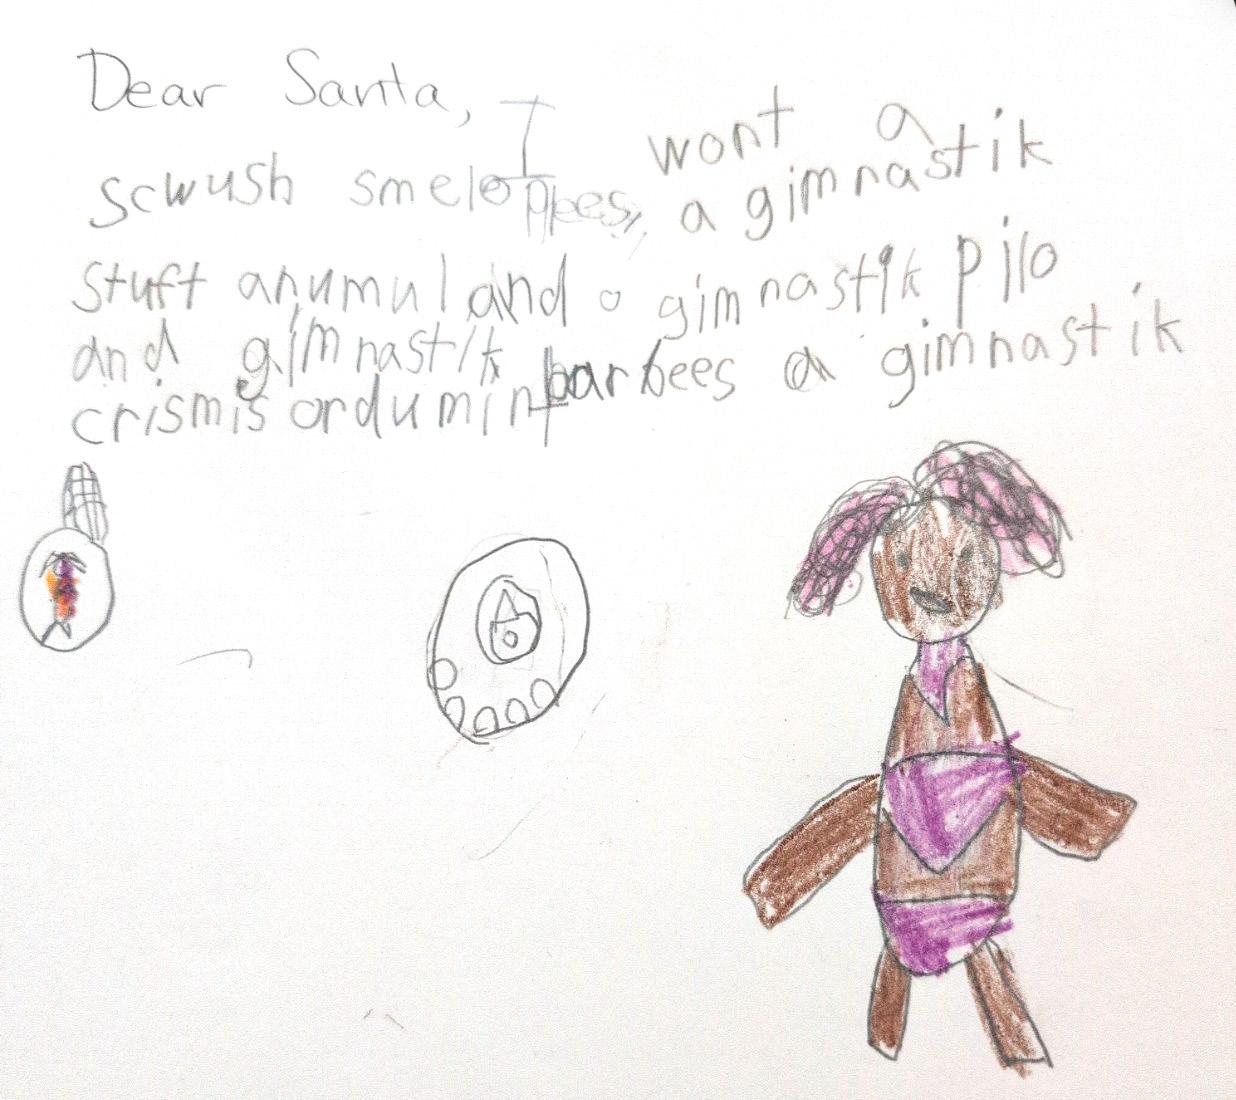 Dear Santa, I wont a
scwush smeloppees, a gimnastik
stuft anumul and a gimnastik pilo
and gimnastik barbees a gimnastik
crismis ordumint